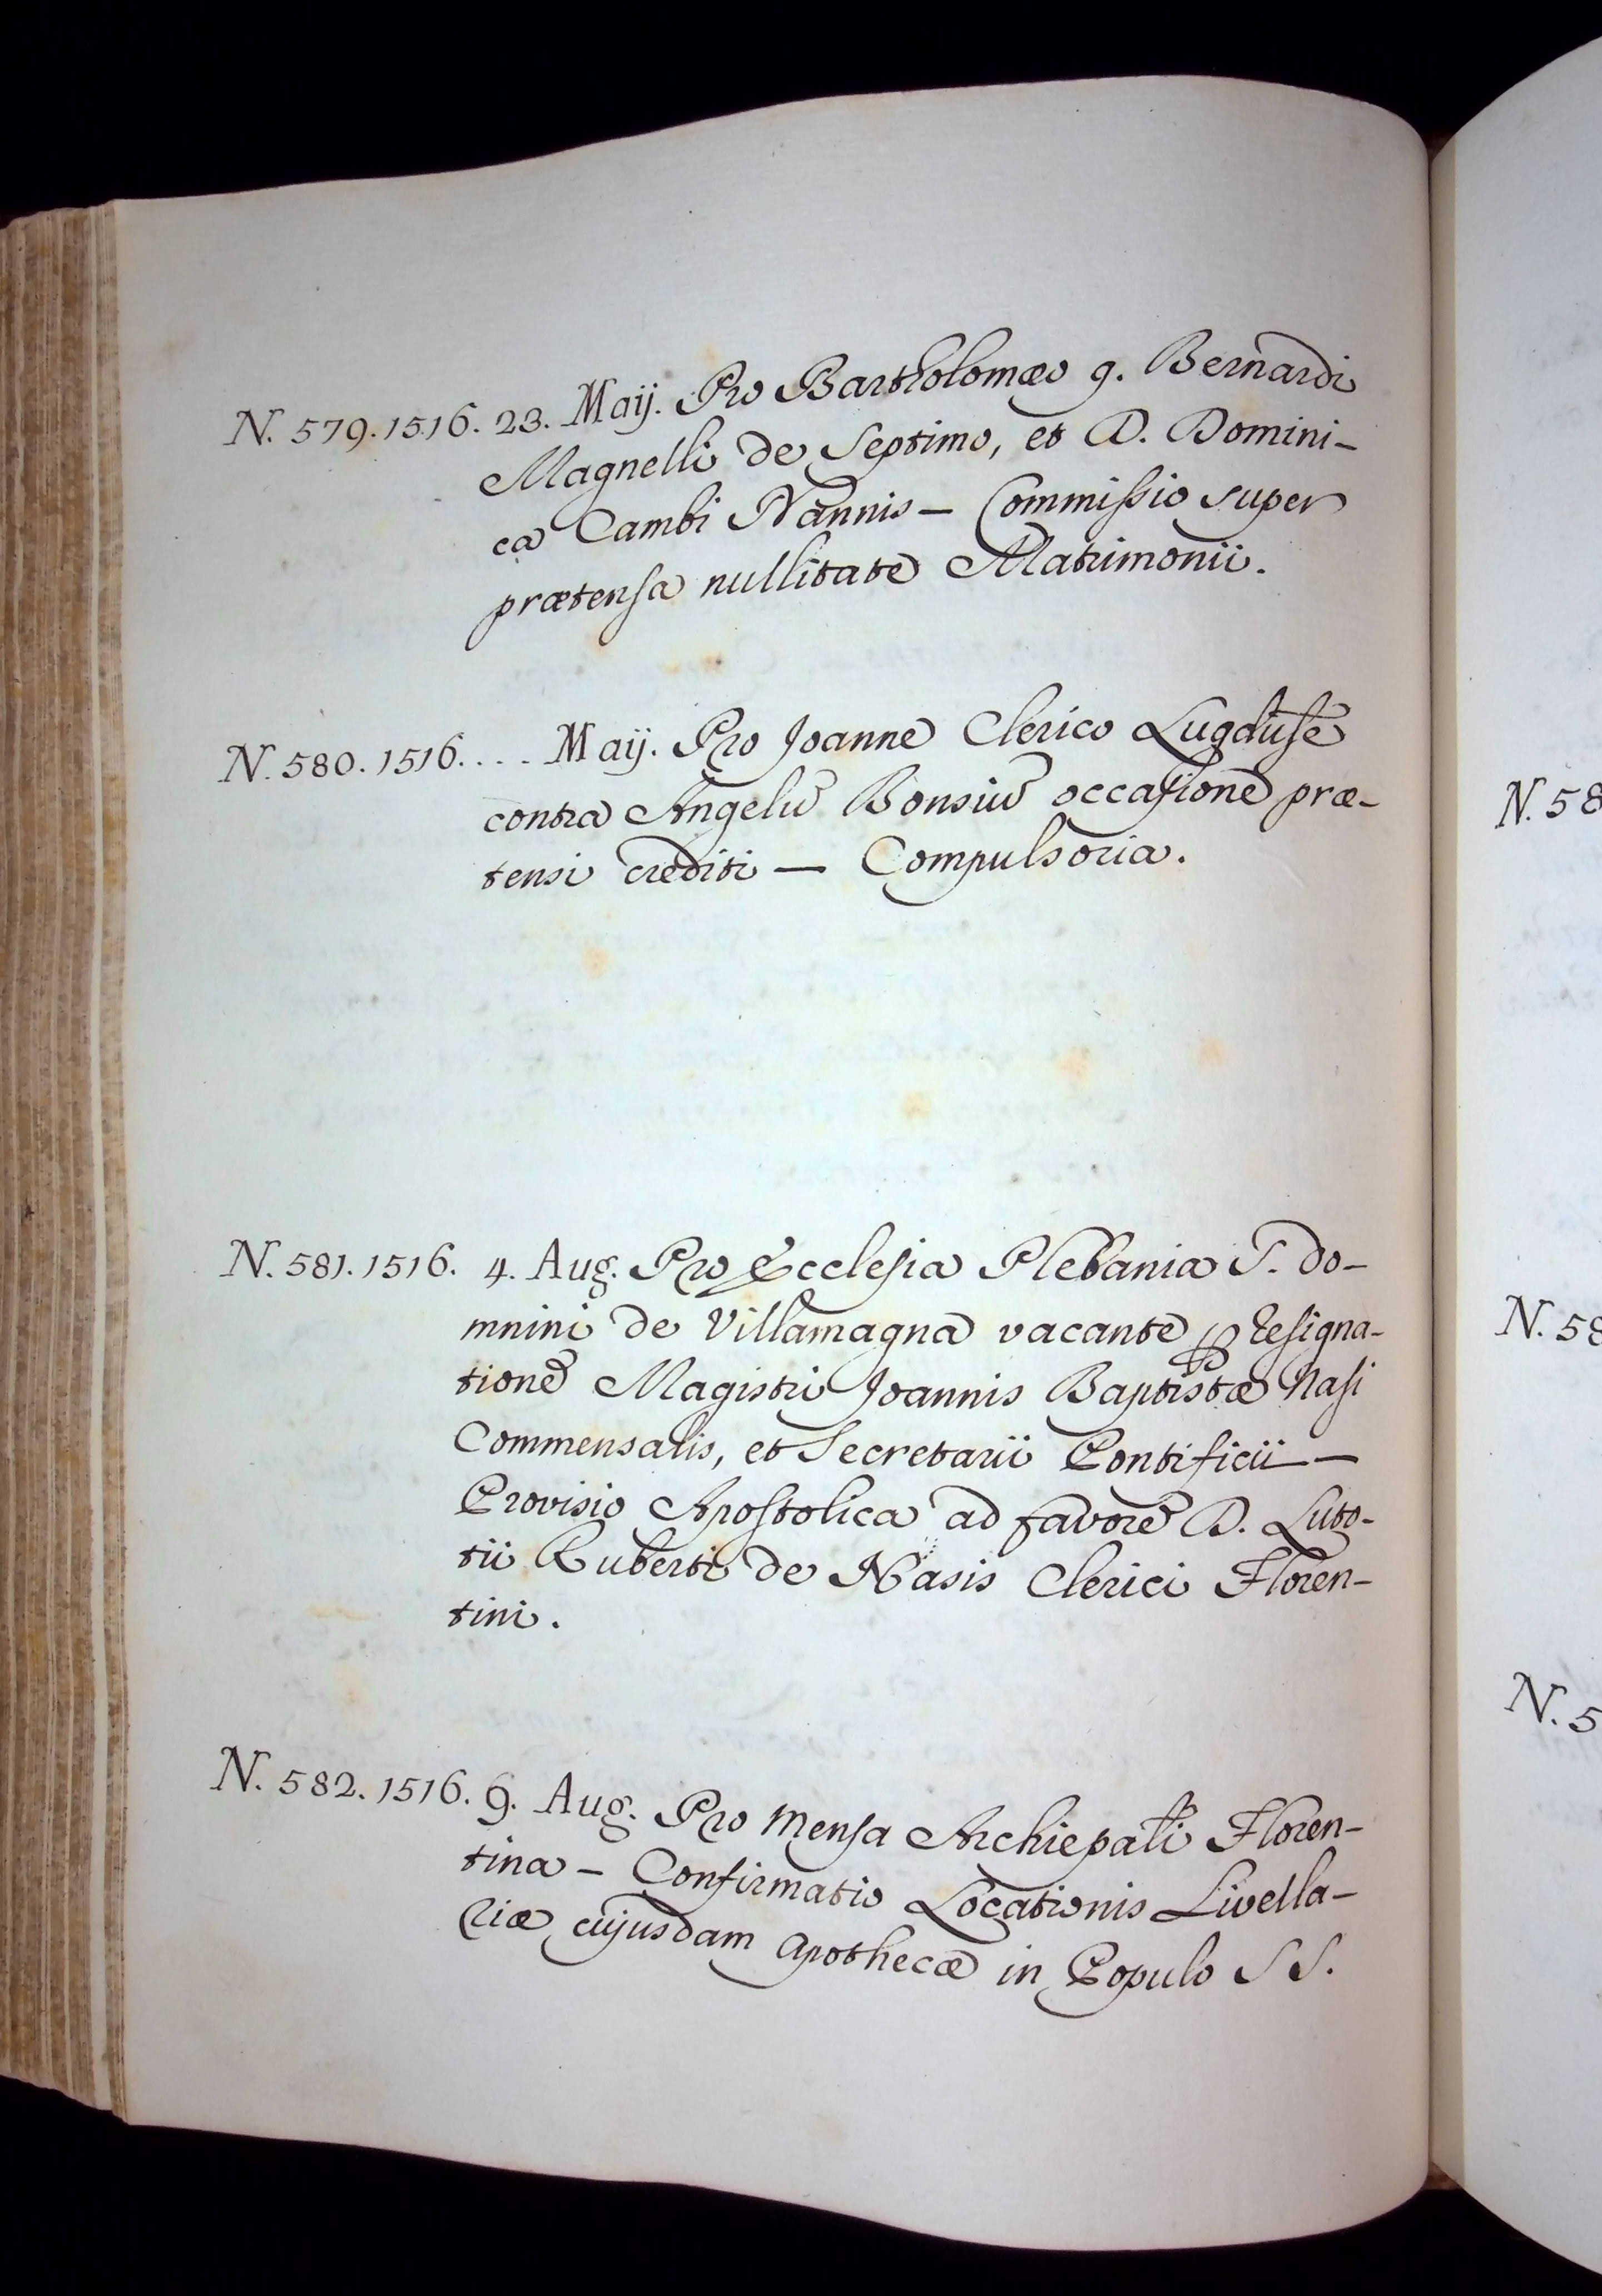 N. 579. 1516. 23. Maij. Pro Bartholomæo q. Bernardi
Magnelli de Septimo, et D. Domini-
ca Cambi Nannis — Commiſsio super
prætenſa nullitate Matrimonii.
N. 580. 1516. . . . Maij. Pro Joanne Clerico Lugdūſē
contra Angelū Bonsiū occaſione præ-
tensi crediti — Compulsoria.
N. 581. 1516. 4. Aug. Pro Eccleſia Plebania S. Do-
mnini de Villamagna vacante ꝑ Reſigna-
tionē Magistri Joannis Baptistæ Naſi
Commensalis, et Secretarii Pontificii —
Provisio Apoſtolica ad favorē D. Luto-
tii Ruberti de Nasis Clerici Floren-
tini.
N. 582. 1516. 9. Aug. Pro Menſa Archiepāli Floren-
tina — Confirmatio Locationis Livella-
riæ cujusdam Apothecæ in Populo S S.
N. 58
N. 58
N. 5